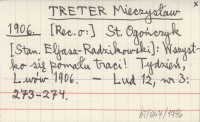 TRETER Mieczysław
1906. [Rec. o:] St. Ogończyk
[Stan. Eljasz-Radzikowski]: Wszyst-
ko się pomału traci! Tydzień,
Lwów 1906. — Lud 12, nr 3:
273-274.